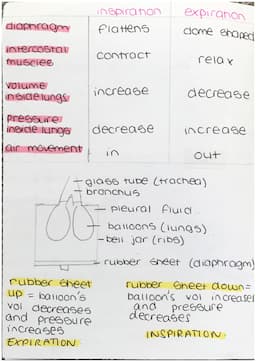 inspiration expiration
diaphragm flattens dome shaped
intercostal
muscles contract relax
volume
inside lungs increase decrease
pressure
inside lungs decrease increase
air movement in out
glass tube (trachea)
bronchus
pleural fluid
balloons (lungs)
bell jar (ribs)
rubber sheet (diaphragm)
rubber sheet
up = balloon's
vol decreases
and pressure
increases
EXPIRATION
rubber sheet down =
balloon's vol increases
and pressure
decreases
INSPIRATION